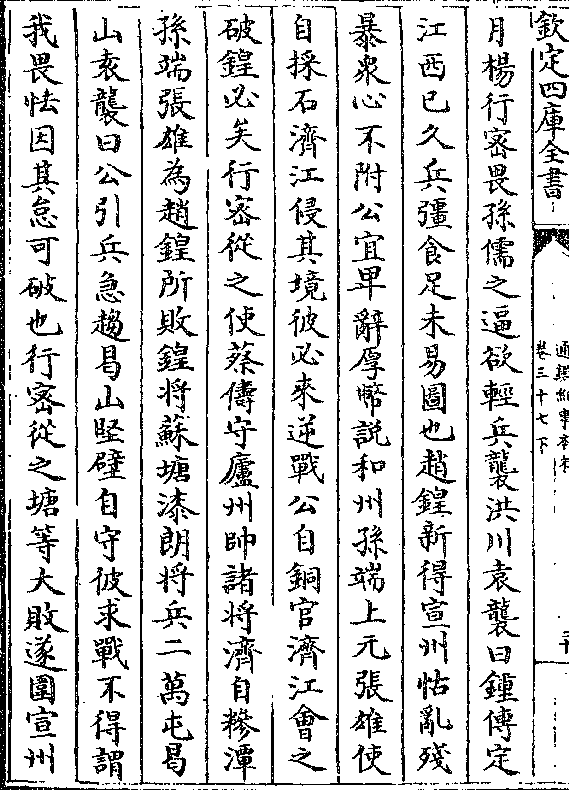 欽定四庫全書
通鑑紀事本末
卷三十七下
月楊行密畏孫儒之逼欲輕兵襲洪川袁襲曰鍾傳定
江西已久兵彊食足未易圖也趙鍠新得宣州怙亂殘
暴衆心不附公宜卑辭厚幣説和州孫端上元張雄使
自採石濟江侵其境彼必來逆戰公自銅官濟江會之
破鍠必矣行密從之使蔡儔守廬州帥諸將濟自糝潭
孫端張雄為趙鍠所敗鍠將蘇塘漆朗將兵二萬屯曷
山袁襲曰公引兵急趨曷山堅壁自守彼求戰不得謂
我畏怯因其怠可破也行密從之塘等大敗遂圍宣州